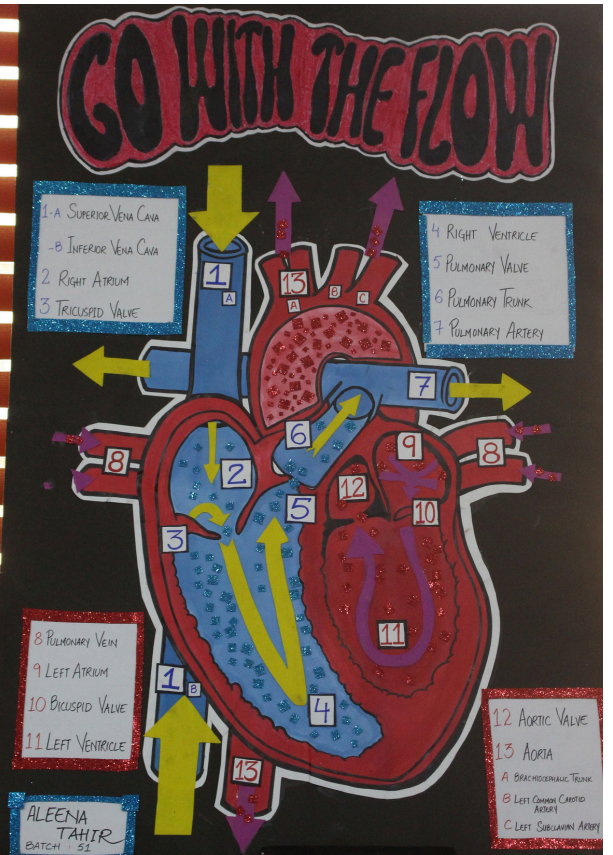 GO WITH THE FLOW
1-A SUPERIOR VENA CAVA
-B INFERIOR VENA CAVA
2 RIGHT ATRIUM
3 TRICUSPID VALVE
4 RIGHT VENTRICLE
5 PULMONARY VALVE
6 PULMONARY TRUNK
7 PULMONARY ARTERY
1
A
13
A
B
C
7
6
9
8
8
2
12
10
5
3
11
1
B
4
13
8 PULMONARY VEIN
9 LEFT ATRIUM
10 BICUSPID VALVE
11 LEFT VENTRICLE
12 AORTIC VALVE
13 AORTA
A BRACHIOCEPHALIC TRUNK
B LEFT COMMON CAROTID
ARTERY
C LEFT SUBCLAVIAN ARTERY
ALEENA
TAHIR
BATCH : 51